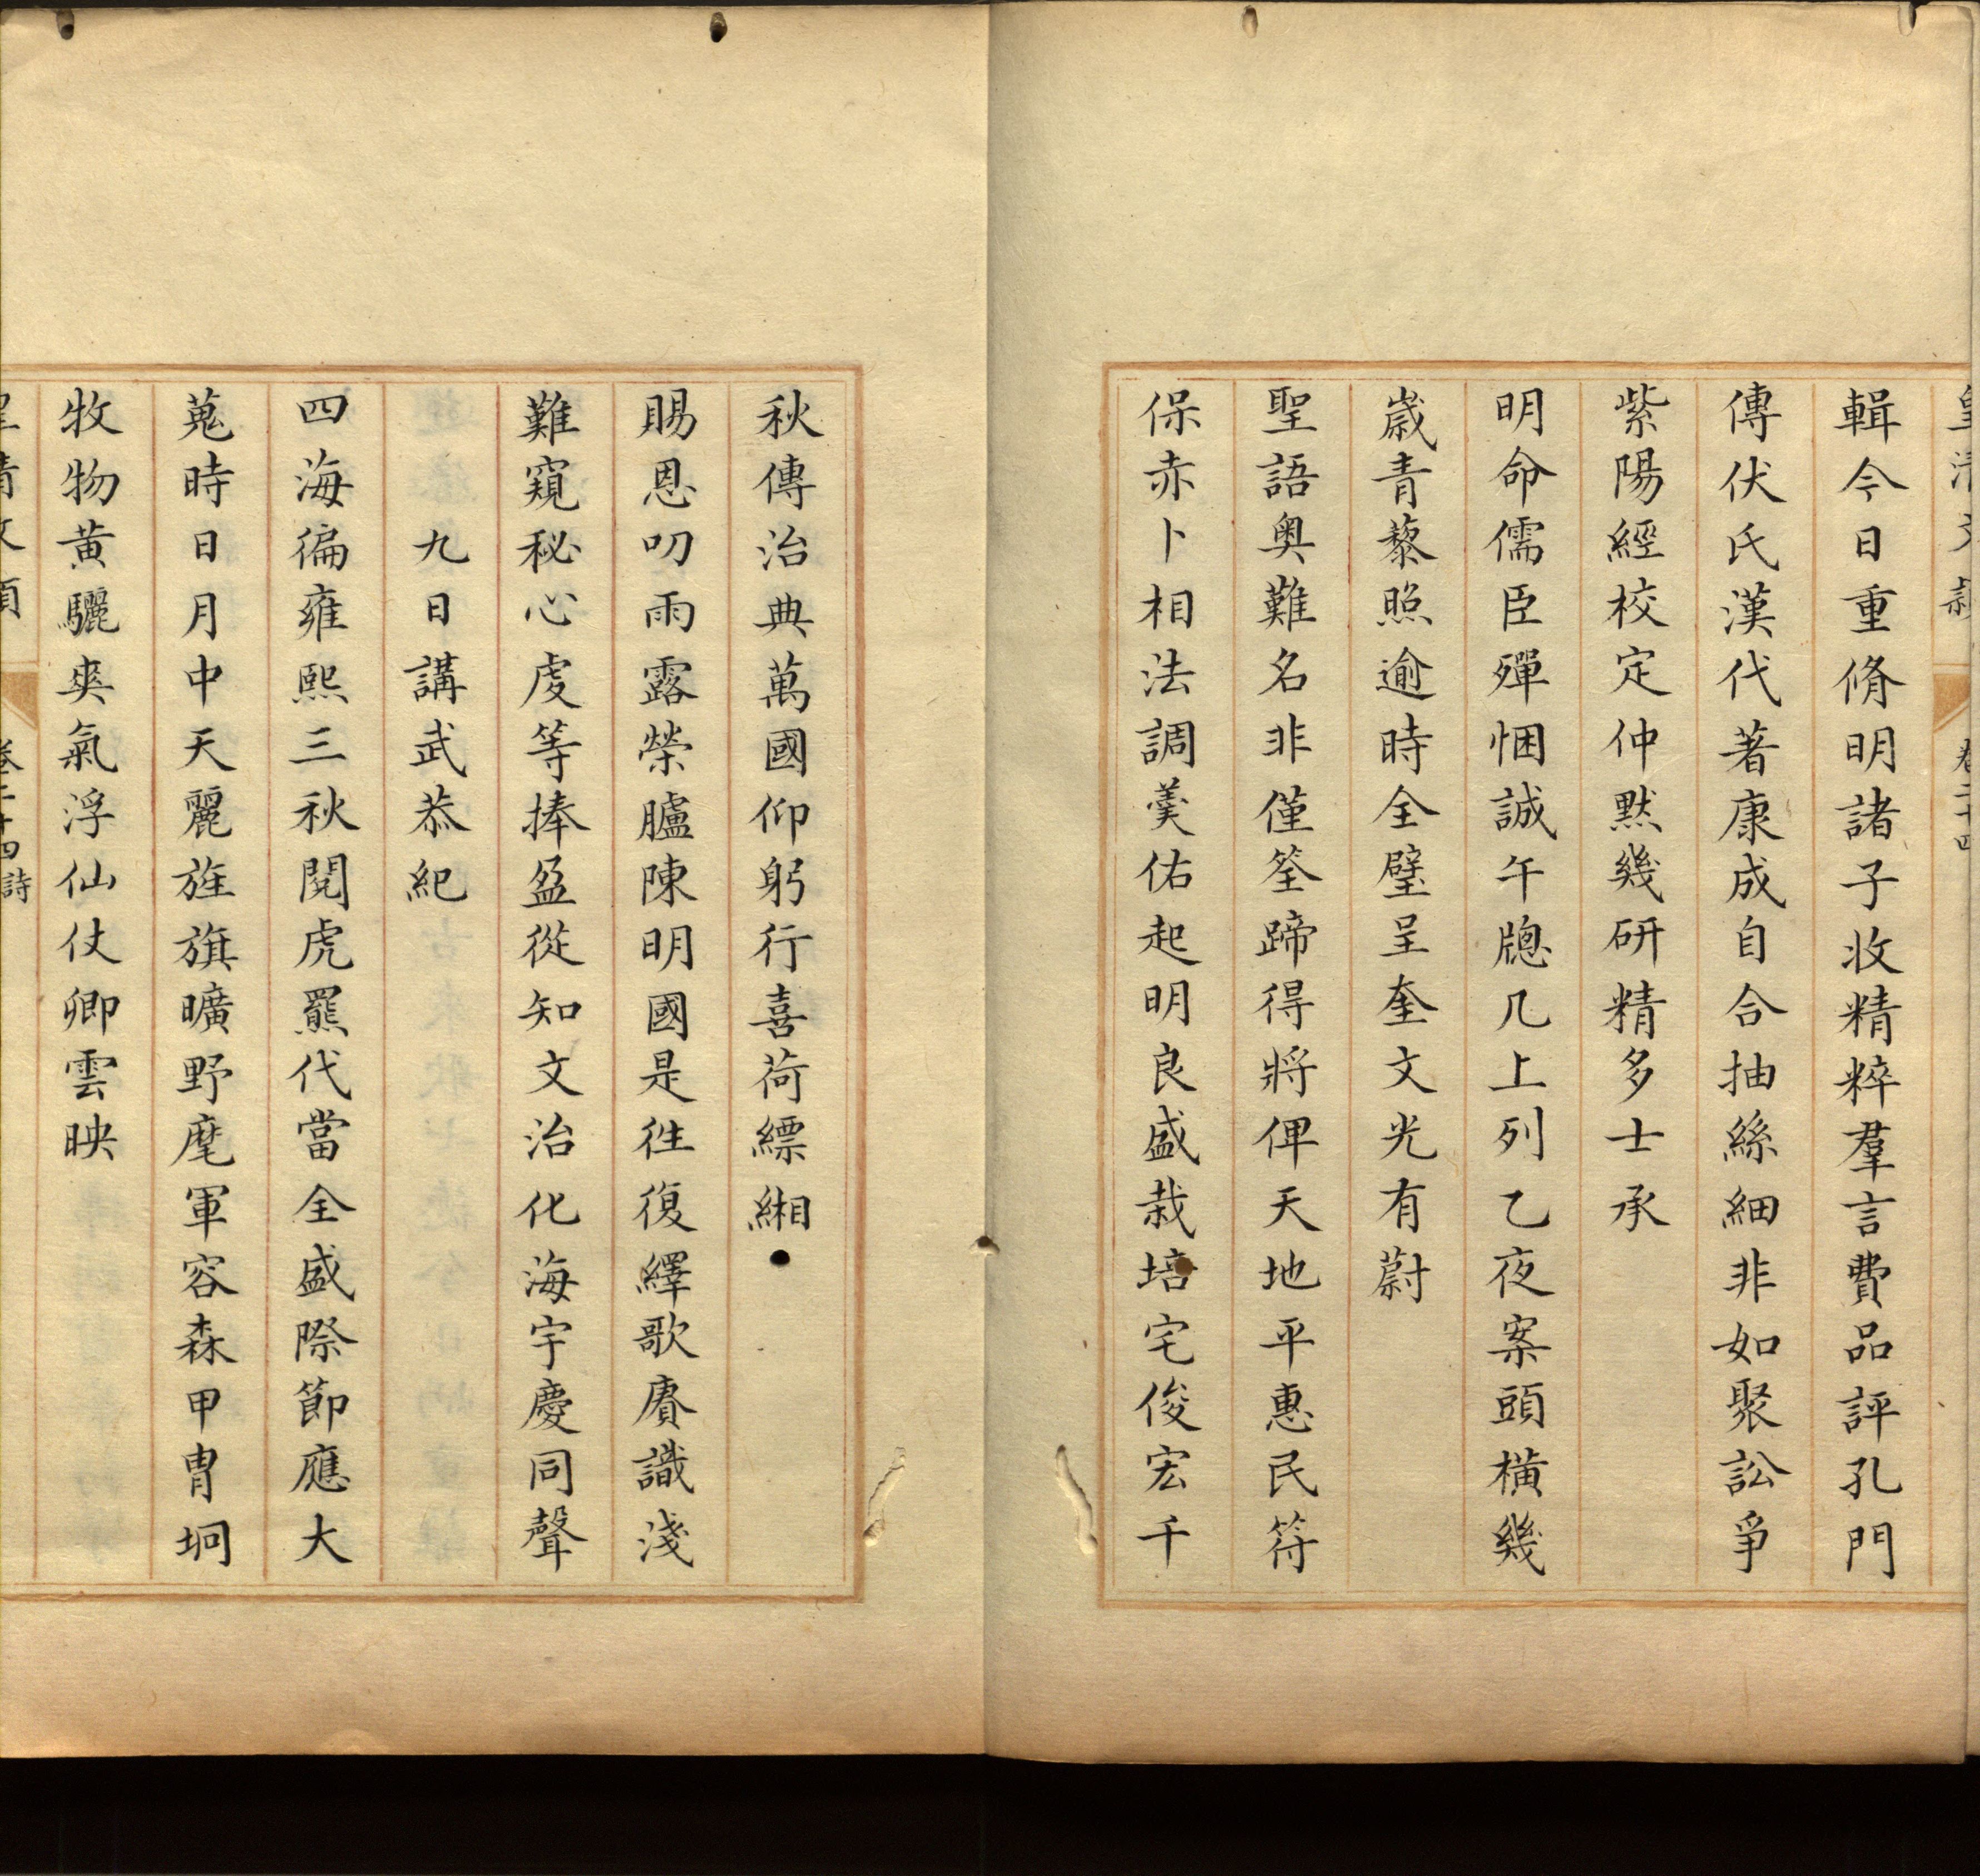 皇清文穎 卷二十四
輯今日重脩明諸子收精粹羣言費品評孔門
傳伏氏漢代著康成自合抽絲細非如聚訟爭
紫陽經校定仲默幾研精多士承
明命儒臣殫悃誠午牕几上列乙夜案頭橫幾
歲青藜照逾時全璧呈奎文光有蔚
聖語奧難名非僅筌蹄得將俾天地平惠民符
保赤卜相法調羹佑起明良盛栽培宅俊宏千
秋傳治典萬國仰躬行喜荷縹緗
賜恩叨雨露榮臚陳明國是徃復繹歌賡識淺
難窺秘心虔等捧盈從知文治化海宇慶同聲
九日講武恭紀
四海徧雍熙三秋閱虎羆代當全盛際節應大
蒐時日月中天麗旌旗曠野麾軍容森甲冑坰
牧物黃驪爽氣浮仙仗卿雲映
皇清文穎 卷二十四詩